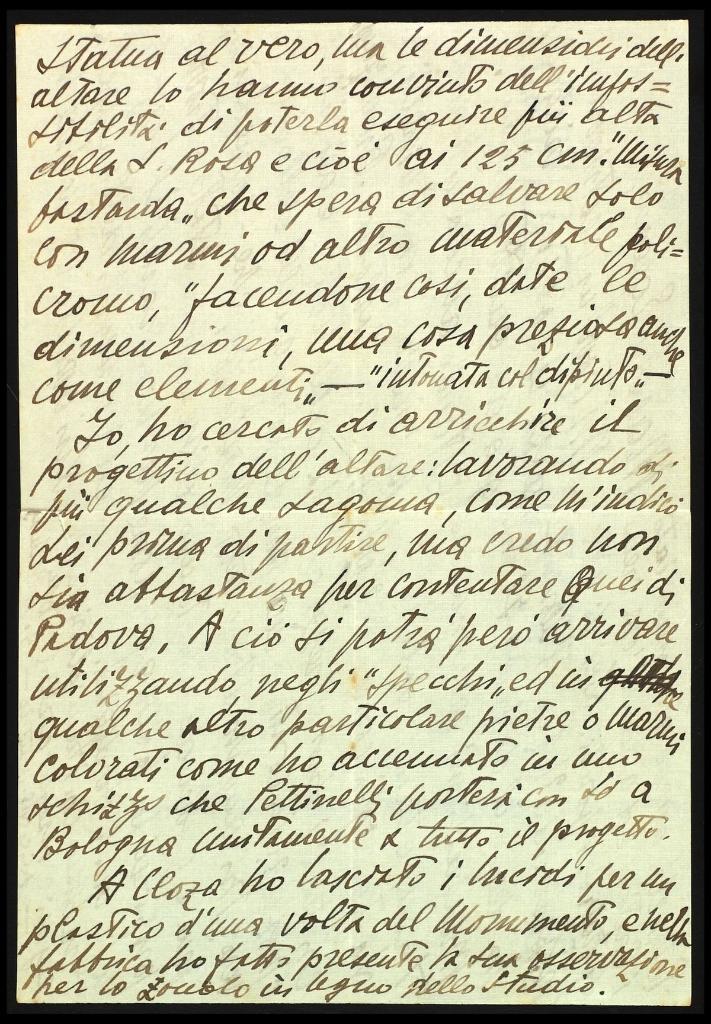 statua al vero, ma le dimensioni dell'
altare lo hanno convinto dell'impos=
sibilità di poterla eseguire più alta
della S. Rosa e cioè ai 125 cm. "Misura
bastarda„ che spera di salvare solo
con marmi od altro materiale poli=
cromo, "facendone così, date le
dimensioni, una cosa preziosa anche
come elementi„ — "intonata col dipinto„ —
Io, ho cercato di arricchire il
progettino dell'altare: lavorando di
più qualche sagoma, come m'indicò
Lei prima di partire, ma credo non
sia abbastanza per contentare Quei di
Padova. A ciò si potrà però arrivare
utilizzando, negli "specchi„ ed in
qualche altro particolare pietre o marmi
colorati come ho accennato in uno
schizzo che Pettinelli porterà con sé a
Bologna unitamente a tutto il progetto.
A Cloza ho lasciato i lucidi per un
plastico d'una volta del Monumento, e nella
fabbrica ho fatto presente la sua osservazione
per lo zoccolo in legno nello studio.